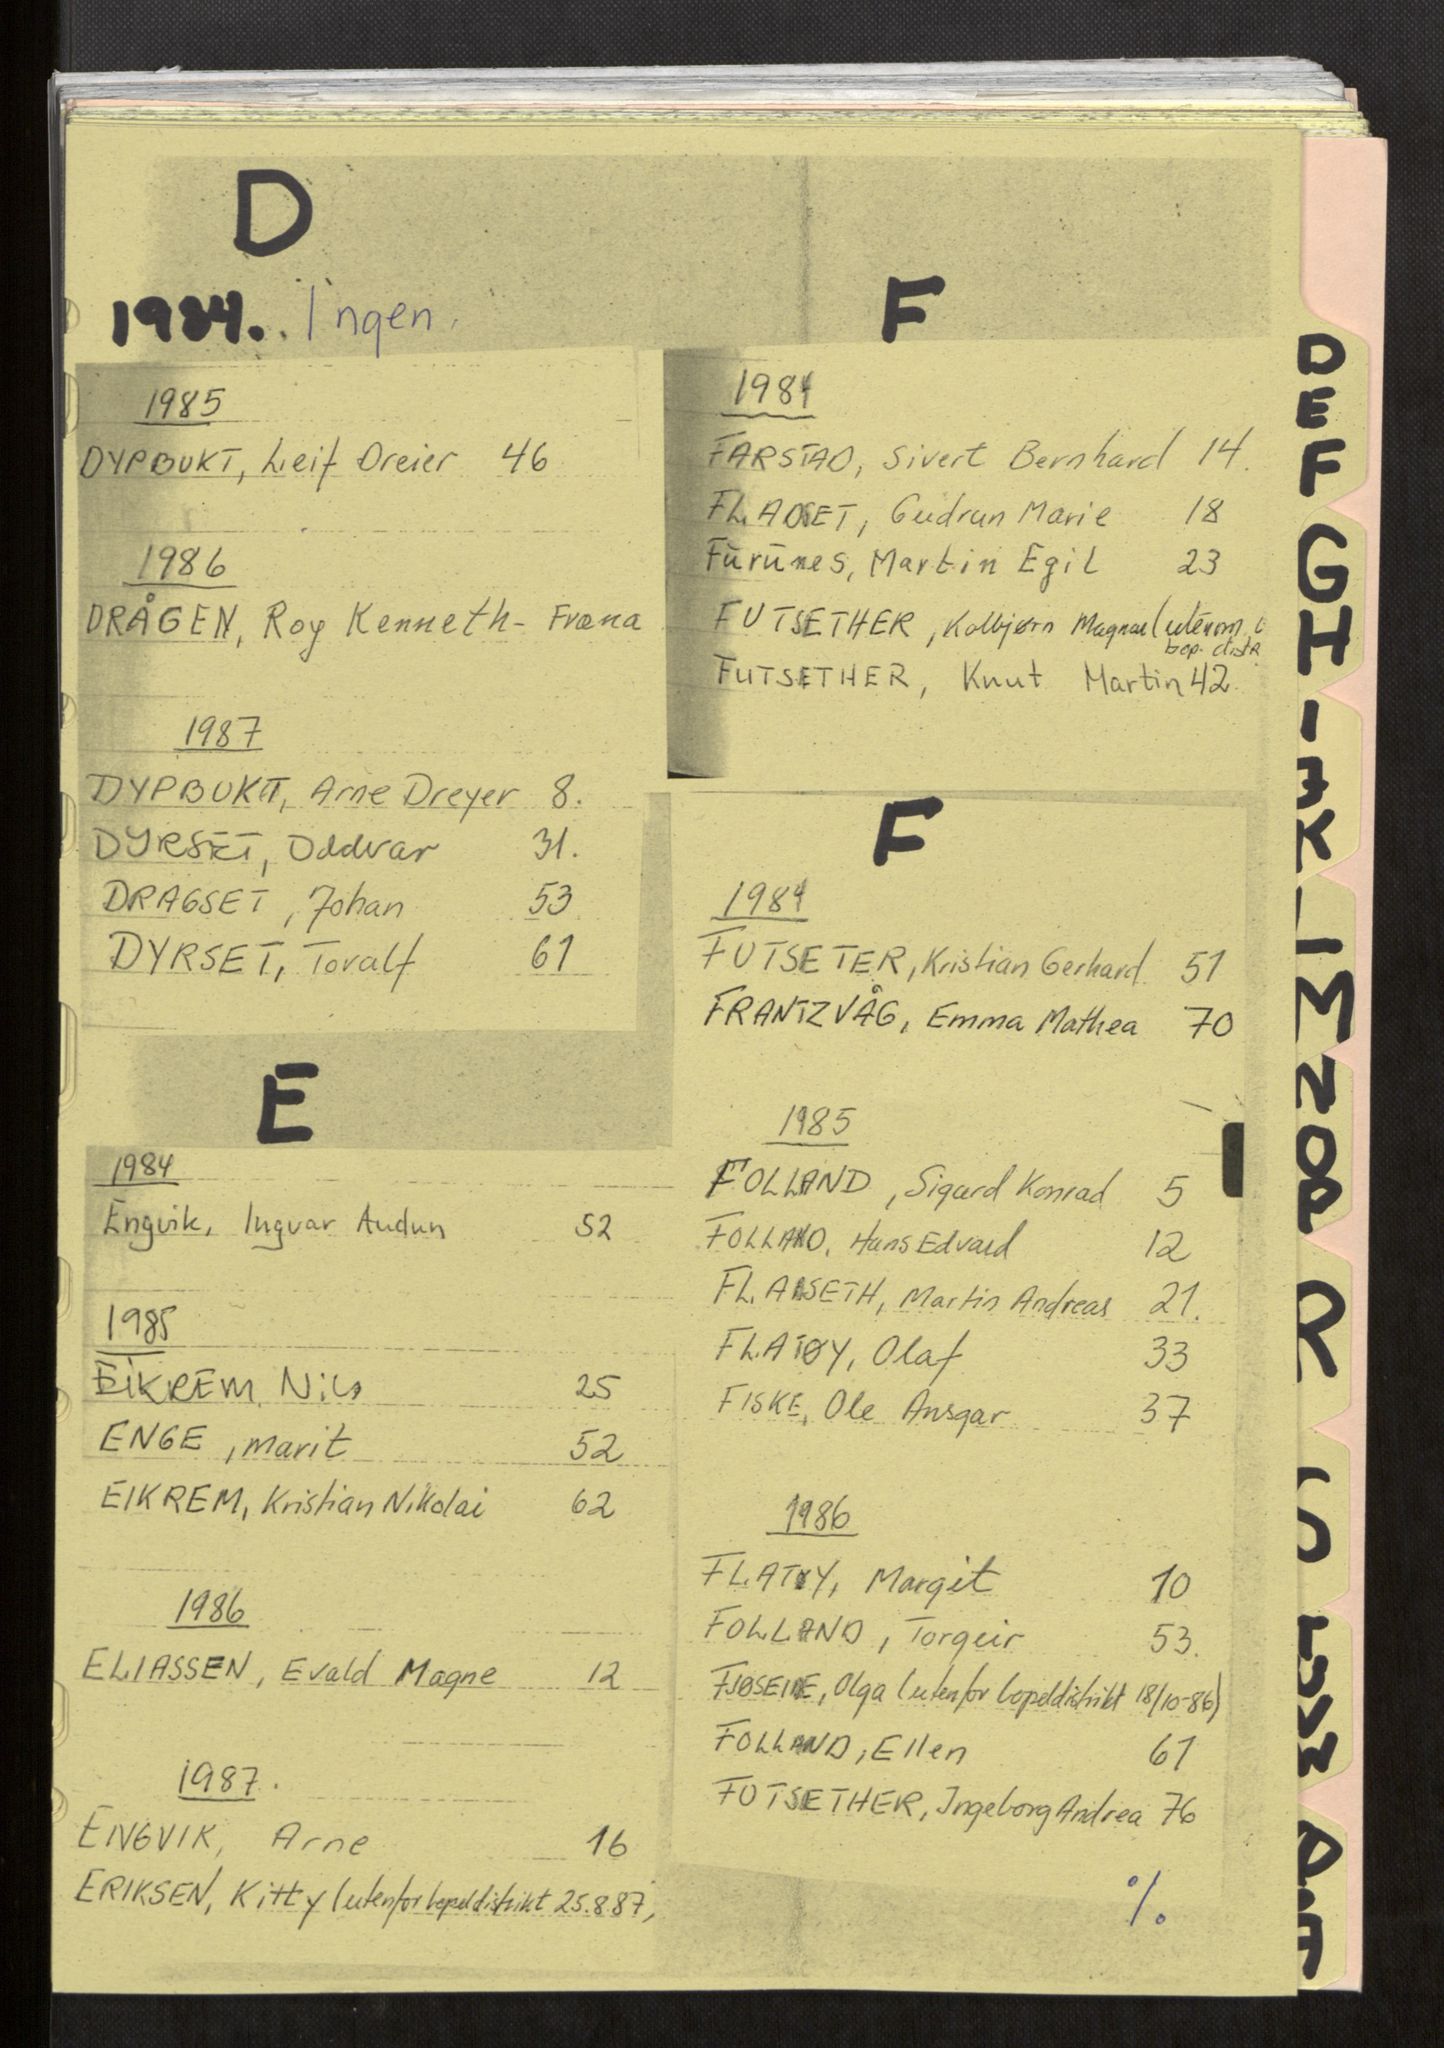 D
1984. Ingen.
1985
DYPBUKT, Leif Dreier 46
1986
DRÅGEN, Roy Kenneth - Fræna
1987
DYPBUKT, Arne Dreyer 8.
DYRSET, Oddvar 31.
DRAGSET, Johan 53
DYRSET, Toralf 61
E
1984
Engvik, Ingvar Audun 52
1985
EIKREM, Nils 25
ENGE, Marit 52
EIKREM, Kristian Nikolai 62
1986
ELIASSEN, Evald Magne 12
1987.
ENGVIK, Arne 16
ERIKSEN, Kitty (utenfor bopeldistrikt 25.8.87,
F
1984
FARSTAD, Sivert Bernhard 14.
FLADSET, Gudrun Marie 18
Furunes, Martin Egil 23
FUTSETHER, Kolbjørn Magnar (utenom
bop. distr.
FUTSETHER, Knut Martin 42.
F
1984
FUTSETER, Kristian Gerhard 51
FRANTZVÅG, Emma Mathea 70
1985
FOLLAND, Sigurd Konrad 5
FOLLAND, Hans Edvard 12
FLADSETH, Martin Andreas 21.
FLATØY, Olaf 33
FISKE, Ole Ansgar 37
1986
FLATØY, Margit 10
FOLLAND, Torgeir 53.
FJØSEIDE, Olga (utenfor bopeldistrikt 18/10-86)
FOLLAND, Ellen 61
FUTSETHER, Ingeborg Andrea 76
%
D
E
F
G
H
I
J
K
L
M
N
O
P
R
S
T
U
V
W
Ø
Å